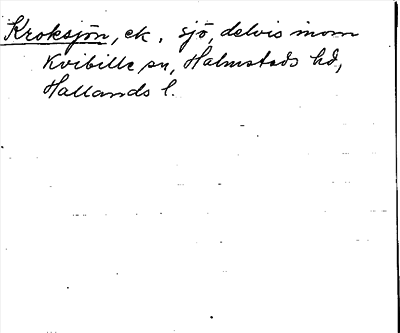 Kroksjön, ek. sjö, delvis inom
Kvibille sn, Halmstads hd,
Hallands l.